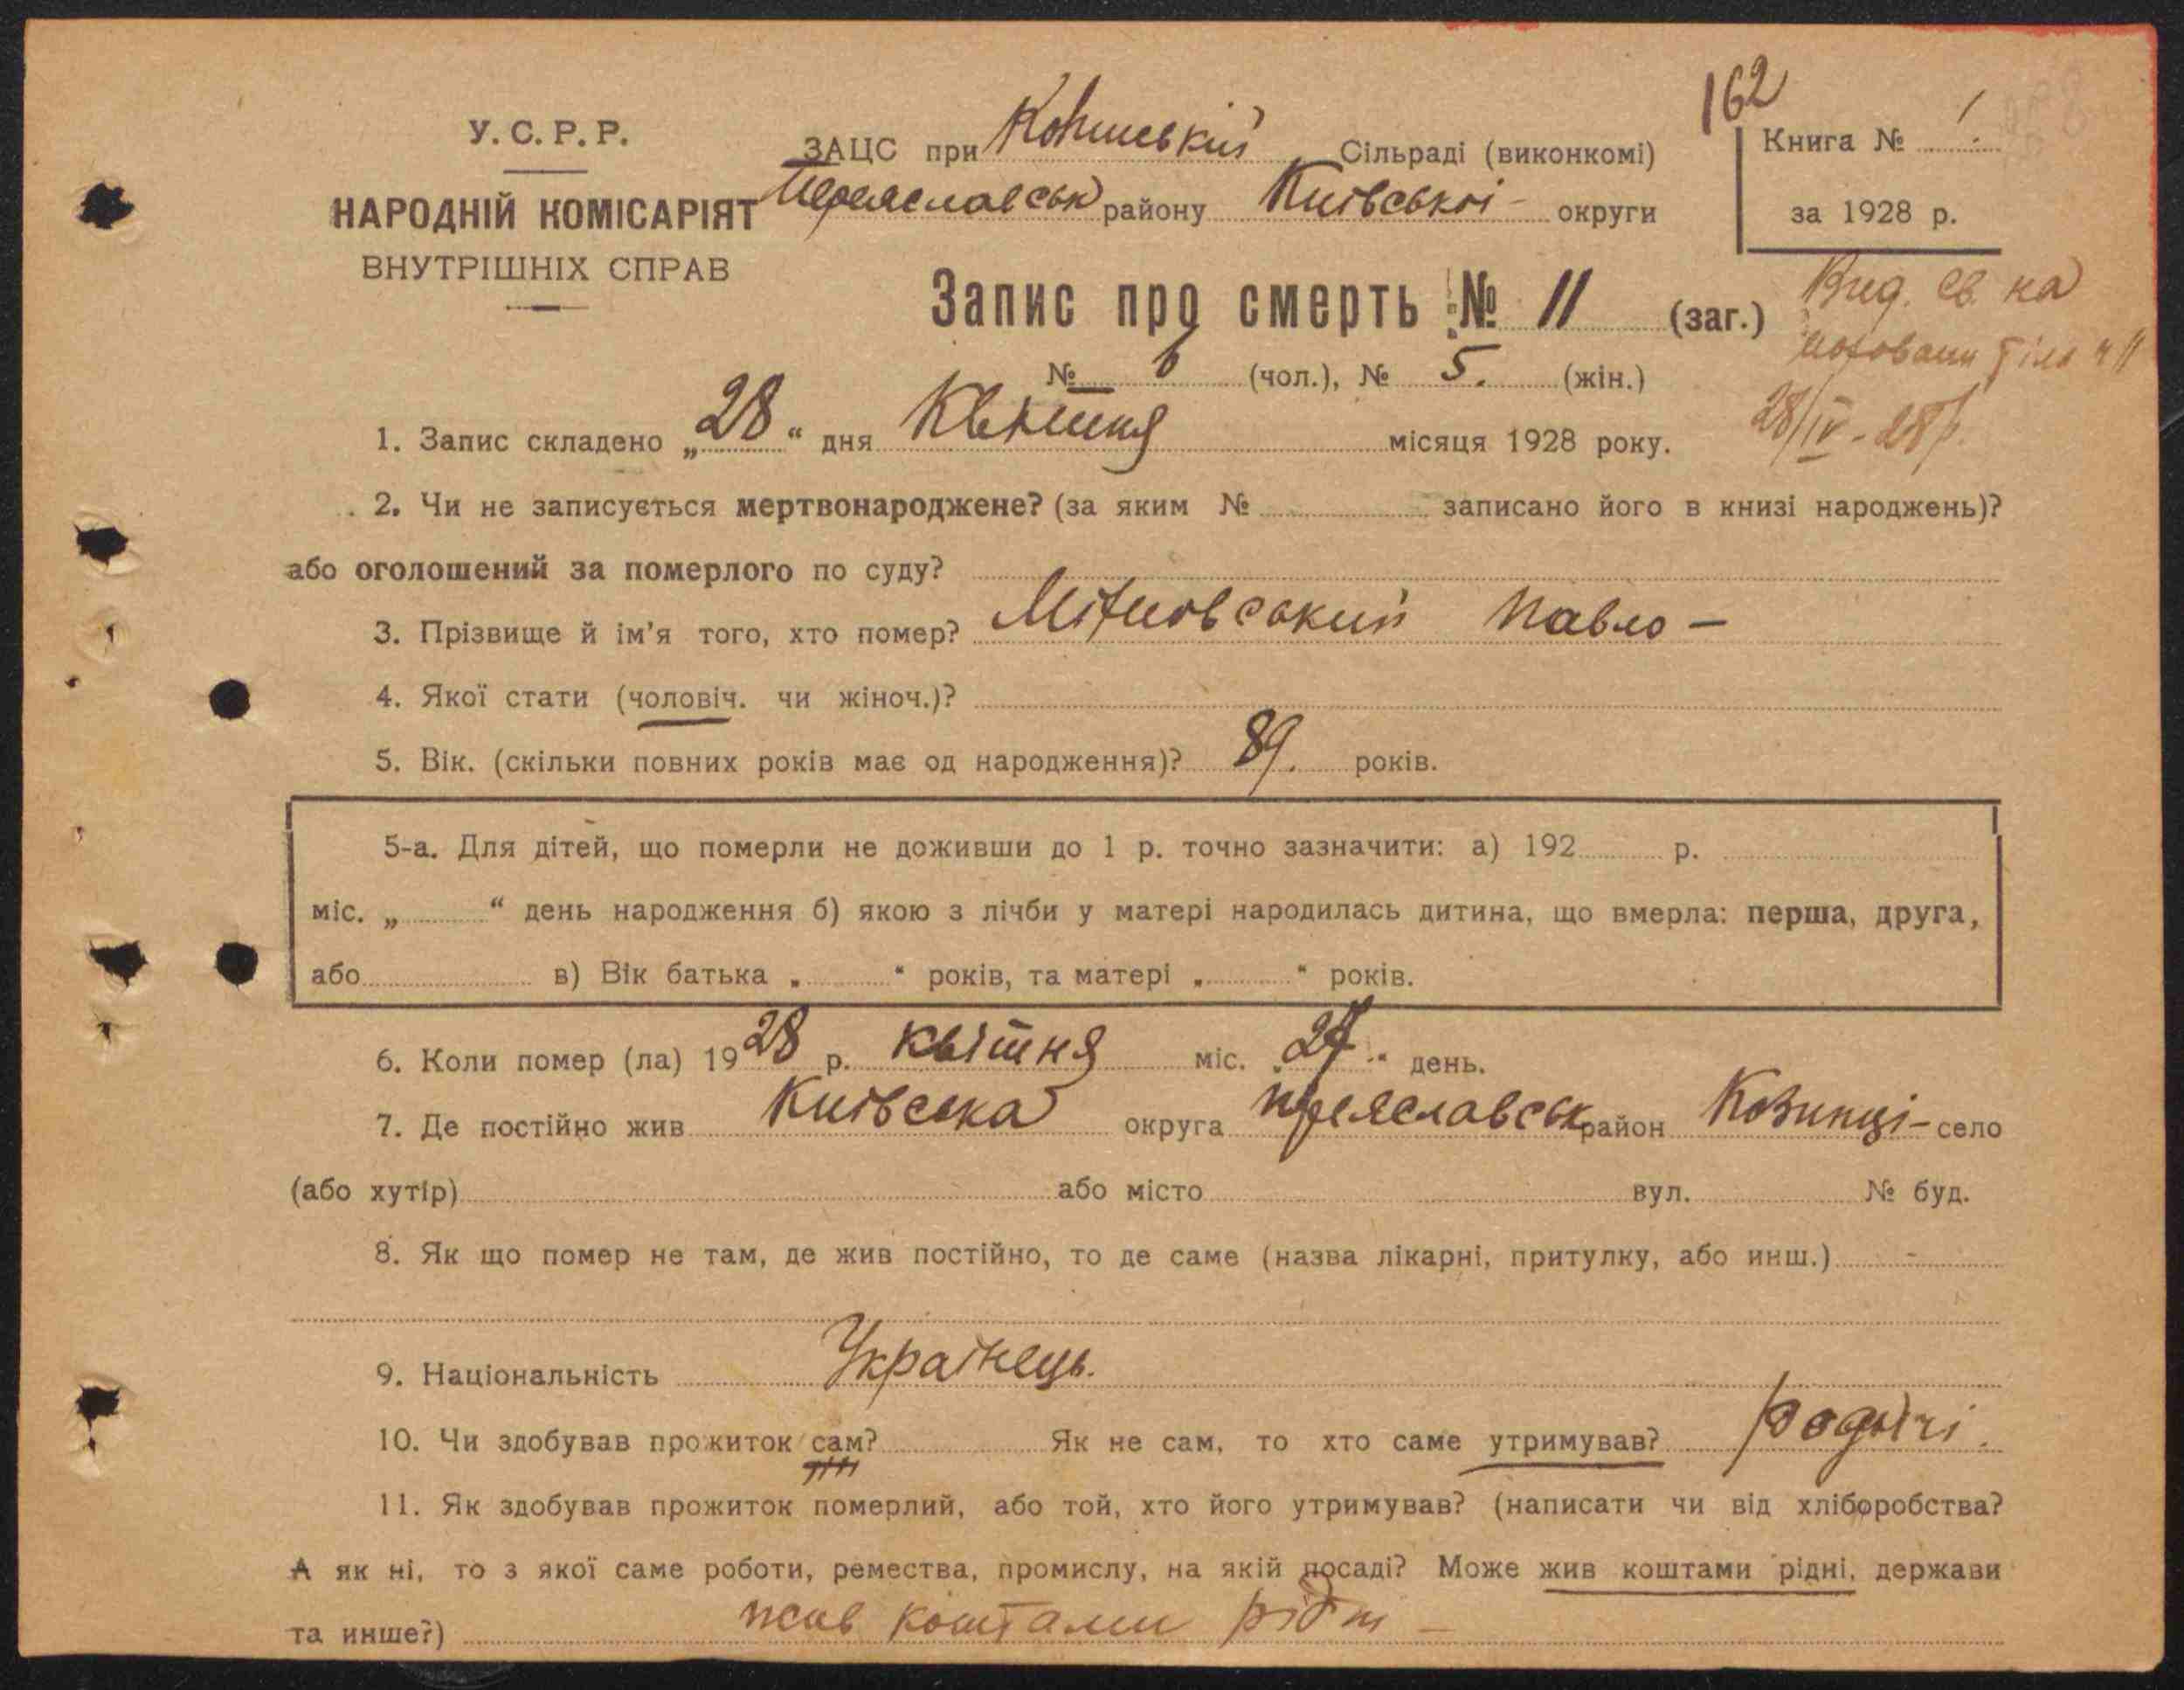 162
У. С. Р. Р.
НАРОДНІЙ КОМІСАРІЯТ
ВНУТРІШНІХ СПРАВ
ЗАЦС при Сільраді (виконкомі)
Переяславськ району Київської - округи
Книга № 1.
за 1928 р.
Запис про смерть № 11 (заг.)
№ 6 (чол.), № 5. (жін.)
Вид. св. на
28/IV-28р
1. Запис складено „28“ дня Квітня місяця 1928 року.
2. Чи не записується мертвонароджене? (за яким № записано його в книзі народжень)?
або оголошений за померлого по суду?
3. Прізвище й ім'я того, хто помер? Мітновський Павло —
4. Якої стати (чоловіч. чи жіноч.)?
5. Вік. (скільки повних років має од народження)? 89. років.
5-а. Для дітей, що померли не доживши до 1 р. точно зазначити: а) 192 р.
міс. „ “ день народження б) якою з лічби у матері народилась дитина, що вмерла: перша, друга,
або в) Вік батька „ “ років, та матері „ “ років.
6. Коли помер (ла) 1928 р. квітня міс. „27“ день.
7. Де постійно жив Київська округа Переяславськ район Ковинці - село
(або хутір) або місто вул. № буд.
8. Як що помер не там, де жив постійно, то де саме (назва лікарні, притулку, або инш.) -
9. Національність Українець.
10. Чи здобував прожиток сам? Як не сам, то хто саме утримував? родичі.
11. Як здобував прожиток померлий, або той, хто його утримував? (написати чи від хліборобства?
А як ні, то з якої саме роботи, ремества, промислу, на якій посаді? Може жив коштами рідні, держави
та инше?) жив коштами рідні —